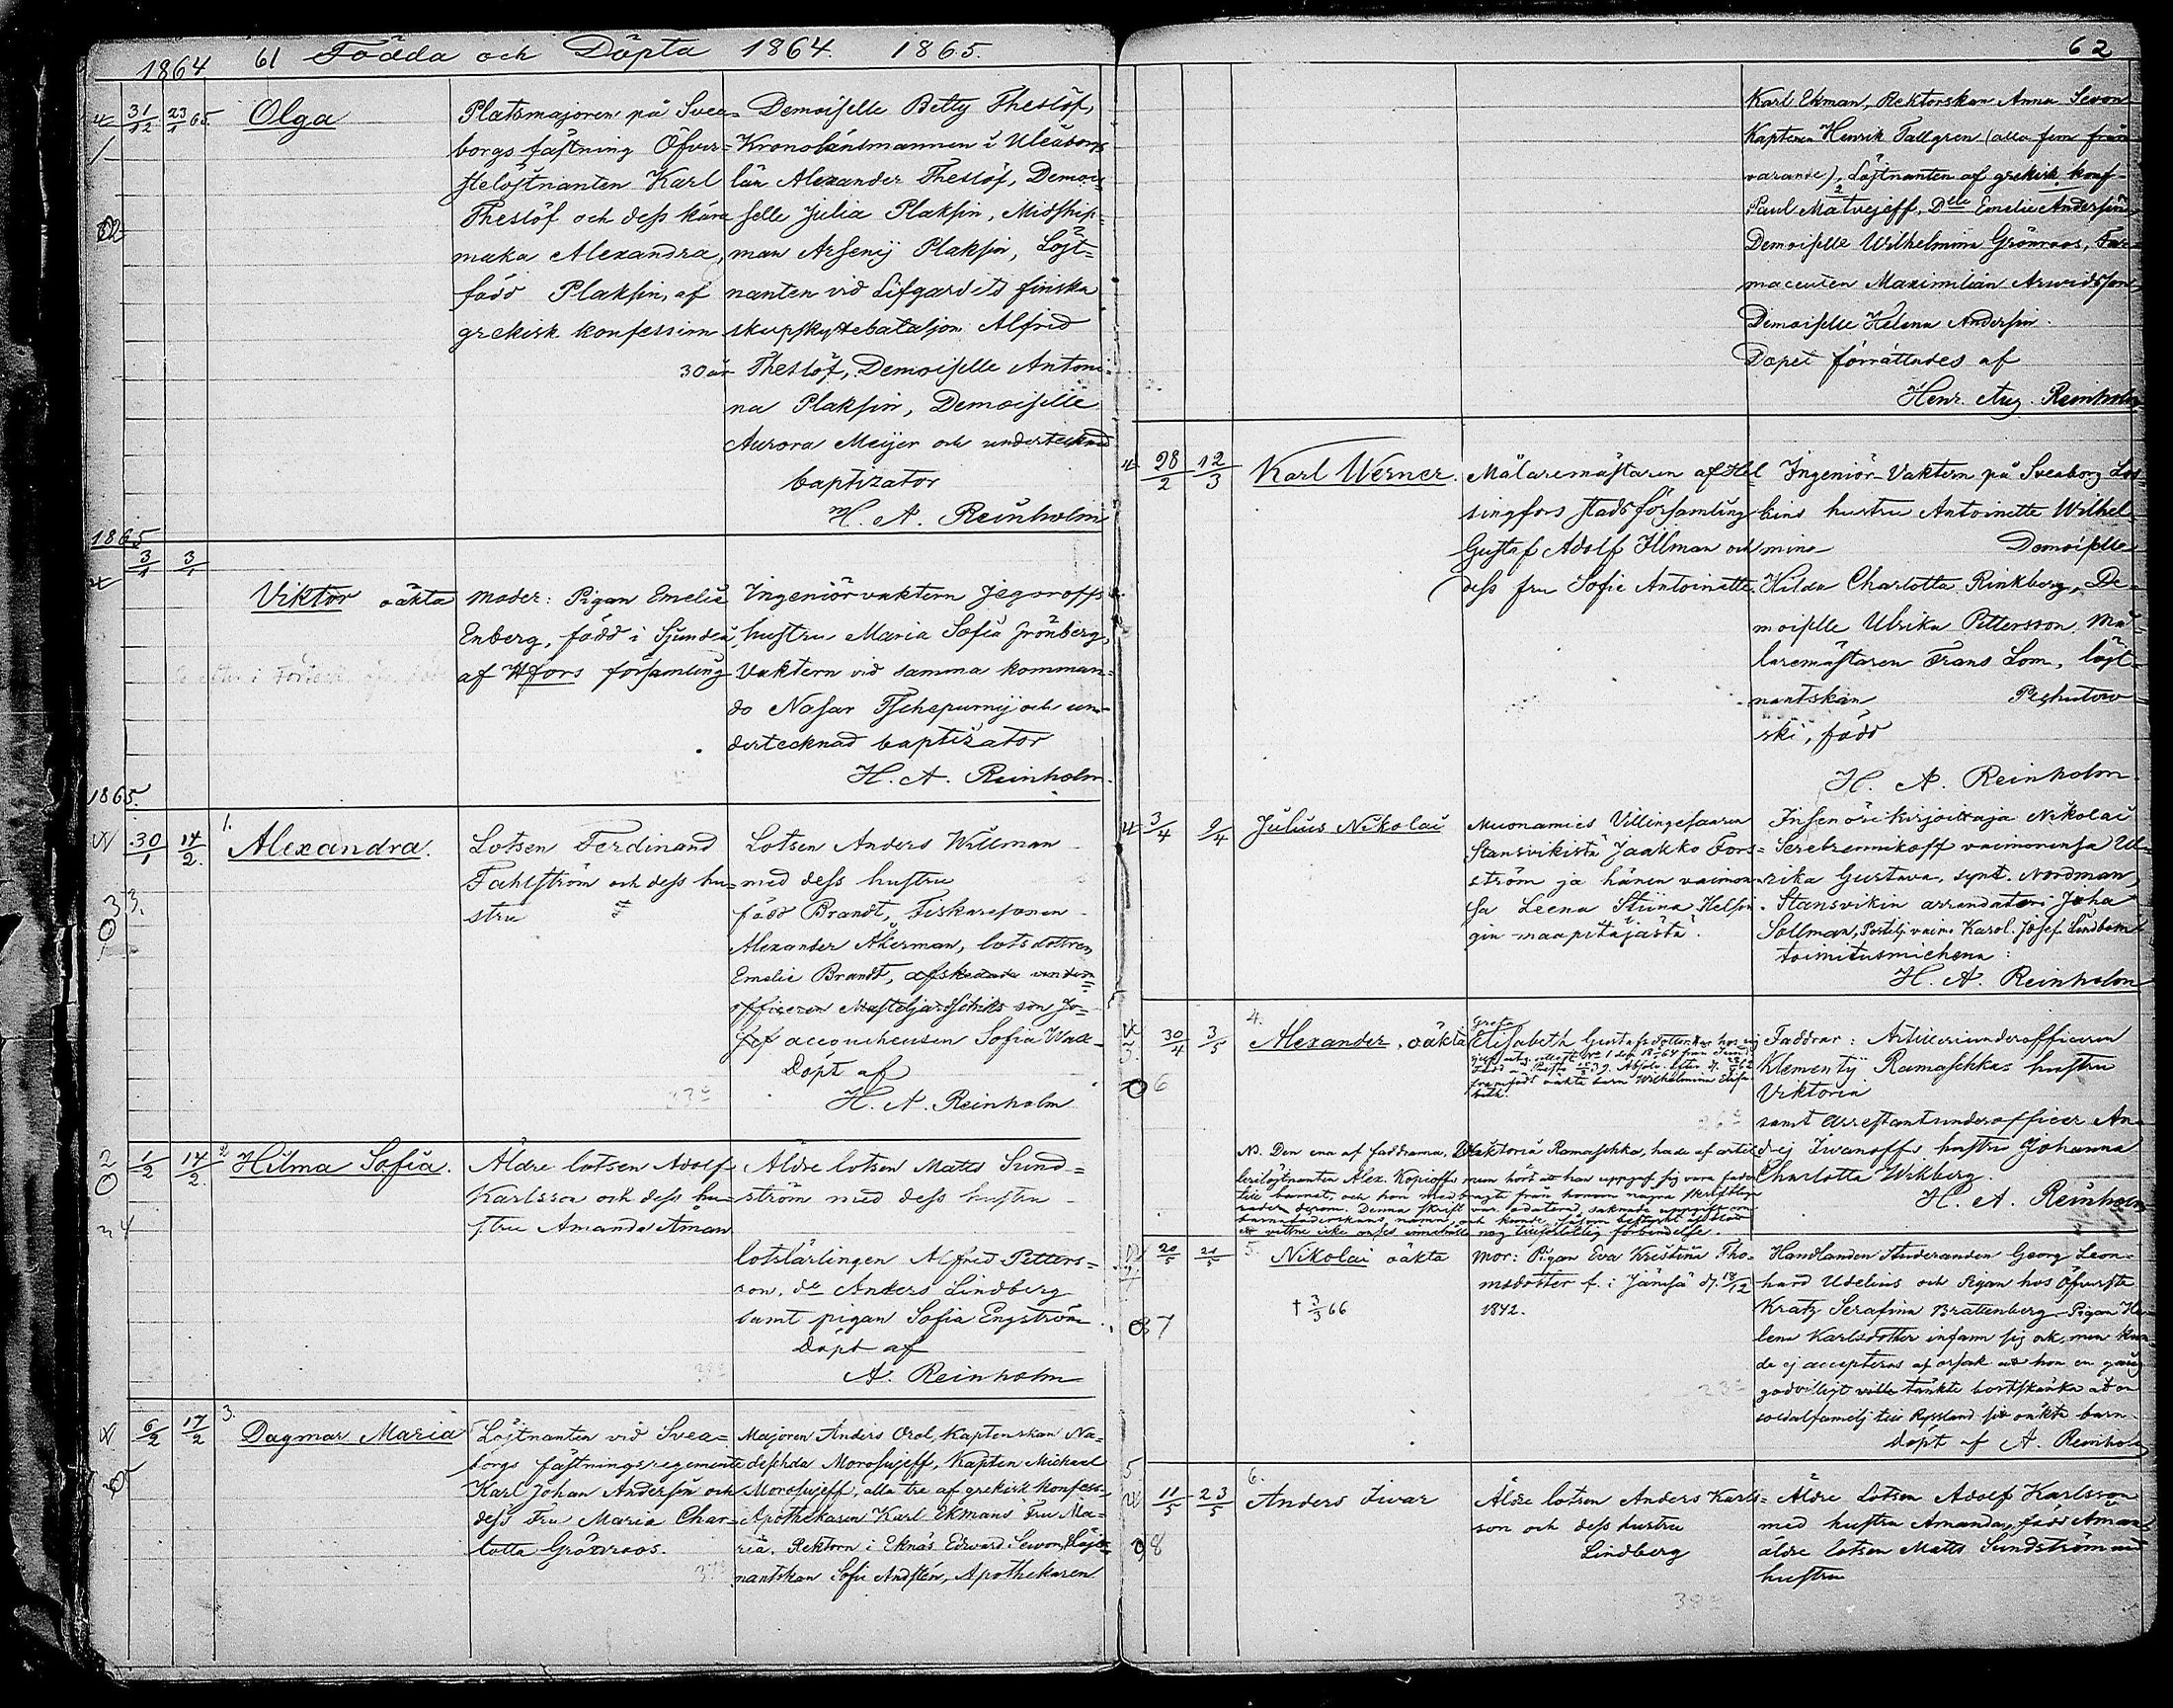 61 Födda och Döpta 1864. 1865.
1864
31/12 23/1 65.
Olga
Platsmajoren på Svea=
borgs fästning Öfver=
stelöjtnanten Karl
Theslöf och dess kära
maka Alexandra,
född Plaksin, af
grekisk konfession
30 år
Demoiselle Betty Theslöf,
Kronolänsmannen i Uleåborgs
län Alexander Theslöf, Demoi=
selle Julia Plaksin, Midship=
man Arsenij Plaksin, Löjt=
nanten vid Lifgardets finska
skarpskyttebataljon Alfred
Theslöf, Demoiselle Antoni=
na Plaksin, Demoiselle
Aurora Meijer och undertecknad
baptizator
H. A. Reinholm
1865
3/1 3/1
Viktor oäkta
Moder: Pigan Emelie
Enberg, född i Sjundeå,
af Hfors församling
Ingeniörvaktern Jegoroffs
hustru Maria Sofia Grönberg,
Vaktern vid samma komman=
do Nasar Tschepurnij och un=
dertecknad baptizator
H. A. Reinholm.
1865.
30/1 14/2.
1.
Alexandra.
Lotsen Ferdinand
Fahlström och dess hu=
stru
Lotsen Anders Willman
med dess hustru
född Brandt, Fiskaresonen
Alexander Åkerman, lotsdottren
Emelie Brandt, afskedade under=
officeren son Jo=
sef accoucheusen Sofia Wall
Döpt af
H. A. Reinholm
1/2 14/2.
2.
Hilma Sofia.
Äldre lotsen Adolf
Karlsson och dess hu=
stru Amanda Åman
Äldre lotsen Matts Sund=
ström med dess hustru
lotslärlingen Alfred Petters=
son, do Anders Lindberg
samt pigan Sofia Engström
Döpt af
A. Reinholm
6/2 17/2
3.
Dagmar Maria
Löjtnanten vid Svea=
borgs fästningsregemente
Karl Johan Andersin och
dess Fru Maria Char=
lotta Grönroos.
Majoren Anders Orol, Kaptenskan Na=
deschda Morosujeff, Kapten Michael
Morosujeff, alla tre af grekisk konfess=
Apothekaren Karl Ekmans Fru Ma=
ria. Rektorn i Eknäs Edvard Sevon, Löjt=
nantskan Sofie, Apothekaren
62
Karl Ekman, Rektorskan Anna Sevon
Kaptenen Henrik Tallgren (alla fem från=
varande), Löjtnanten af grekisk konf=
Paul Matvejeff, Dlle Emelie Andersin
Demoiselle Wilhelmina Grönroos, Far=
maceuten Maximilian Arvidsson,
Demoiselle Helena Andersin.
Dopet förrättades af
Henr. Aug. Reinholm
28/2 12/3
Karl Werner.
Målaremästaren af Hel
singfors stads församling
Gustaf Adolf Illman och
dess fru Sofie Antoinette
Ingeniör-Vaktern på Sveaborg
hustru Antoinette Wilhel
mina Demoiselle
Hilda Charlotta Rinkberg, De=
moiselle Ulrika Pettersson, Må=
laremästaren Frans Lom, löjt=
nantskan
ski, född
H. A. Reinholm
3/4 9/4
Julius Nikolai
Muonamies Villingesaaren
Stansvikista Jaakko Fors=
ström ja hänen vaimon=
sa Leena Stiina Helsin=
gin maapitäjästä.
Insenöri kirjoittaja Nikolai
Serebrennikoff vaimonensa Ul=
rika Gustava, synt. Nordman,
Stansvikin arrendatori Juha
Sollman, Karol. Josef. Lindbom
toimitusmiehenä:
H. A. Reinholm
30/4 3/5
4.
Alexander, oäkta
Greta
Elisabeth Gustafsdotter
framfödt oäkta barn Wilhelmina Elisa=
beth.
Faddrar: Artilleriunderofficeren
Klementij Ramaschkas hustru
Viktoria
samt arrestantunderofficer An=
drej Iwanoffs hustru Johanna
Charlotta Wikberg.
H. A. Reinholm
NB. Den ena af faddrarna, Viktoria Ramaschka, hade af artil=
lerilöjtnanten Alex. Kopieffs mun hört att han uppgaf sig vara fader
till barnet, och hon medbragte från honom några skriftliga
rader derom. Denna skrift var odaterad, saknade uppgift om
barnaföderskans namn och kunde,
vittne icke anses innehålla nog tillförlitlig förbindelse.
20/5 21/5
5.
Nikolai oäkta
† 3/3 66
Mor: Pigan Eva Kristina Tho=
masdotter f. i Jämsä d. 18/12
1842.
Handlanden Studeranden Georg Leon=
hard Udelius och Pigan hos Öfverste
Kratz Serafina Brattenberg. Pigan He=
lena Karlsdotter infann sig ock, men kun
de ej accepteras af orsak att hon en gång
godvilligt velat tänkte bortskänka åt en
soldatfamilj till Ryssland sitt oäkta barn.
Döpt af A. Reinholm
11/5 23/5
6.
Anders Ivar
Äldre lotsen Anders Karls=
son och dess hustru
Lindberg
Äldre Lotsen Adolf Karlsson
med hustru Amanda, född Åman
äldre lotsen Matts Sundström med
hustru